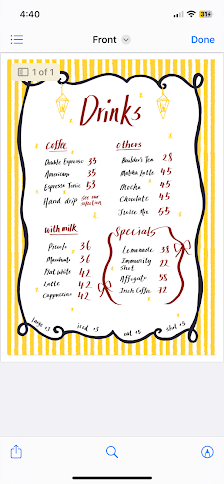 4:40
Front
Done
1 of 1
Drinks
Coffee
Double Espresso 35
Americano 35
Espresso Tonic 55
Hand drip see our selection
with milk
Piccolo 36
Macchiato 36
Flat White 42
Latte 42
Cappuccino 42
Others
Builder's Tea 28
Matcha Latte 45
Mocha 45
Chocolate 45
Iso
Specials
Lemonade 38
Immunity Shot 22
Affogato 58
Irish Coffee 72
large +5 iced +5 oat +5 shot +5